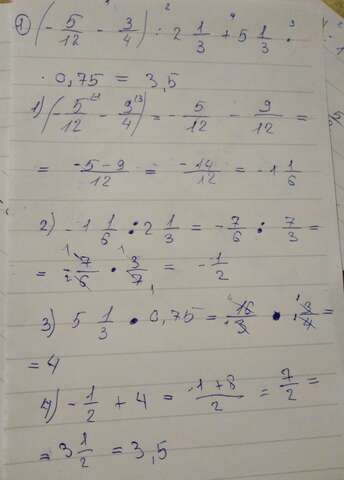 1 (- 5/12 - 3/4) : 2 1/3 + 5 1/3 ·
· 0,75 = 3,5
1) (- 5/12 - 3/4) = - 5/12 - 9/12 =
= -5-9/12 = -14/12 = -1 1/6
2) -1 1/6 : 2 1/3 = - 7/6 : 7/3 =
= - 7/6 · 3/7 = - 1/2
3) 5 1/3 · 0,75 = 16/3 · 3/4 =
= 4
4) - 1/2 + 4 = -1+8/2 = 7/2 =
= 3 1/2 = 3,5